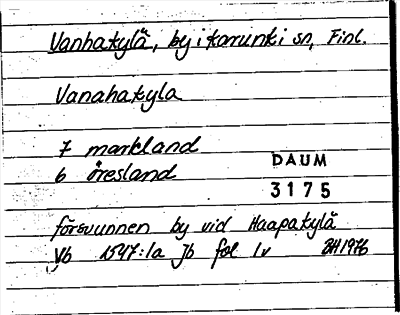 Vanhakylä, by i Karunki sn, Finl.
Vanahakyla
7 markland
6 öresland
DAUM
3175
försvunnen by vid Haapakylä
Yb 1547:1a Jb fol 1v BH 1976